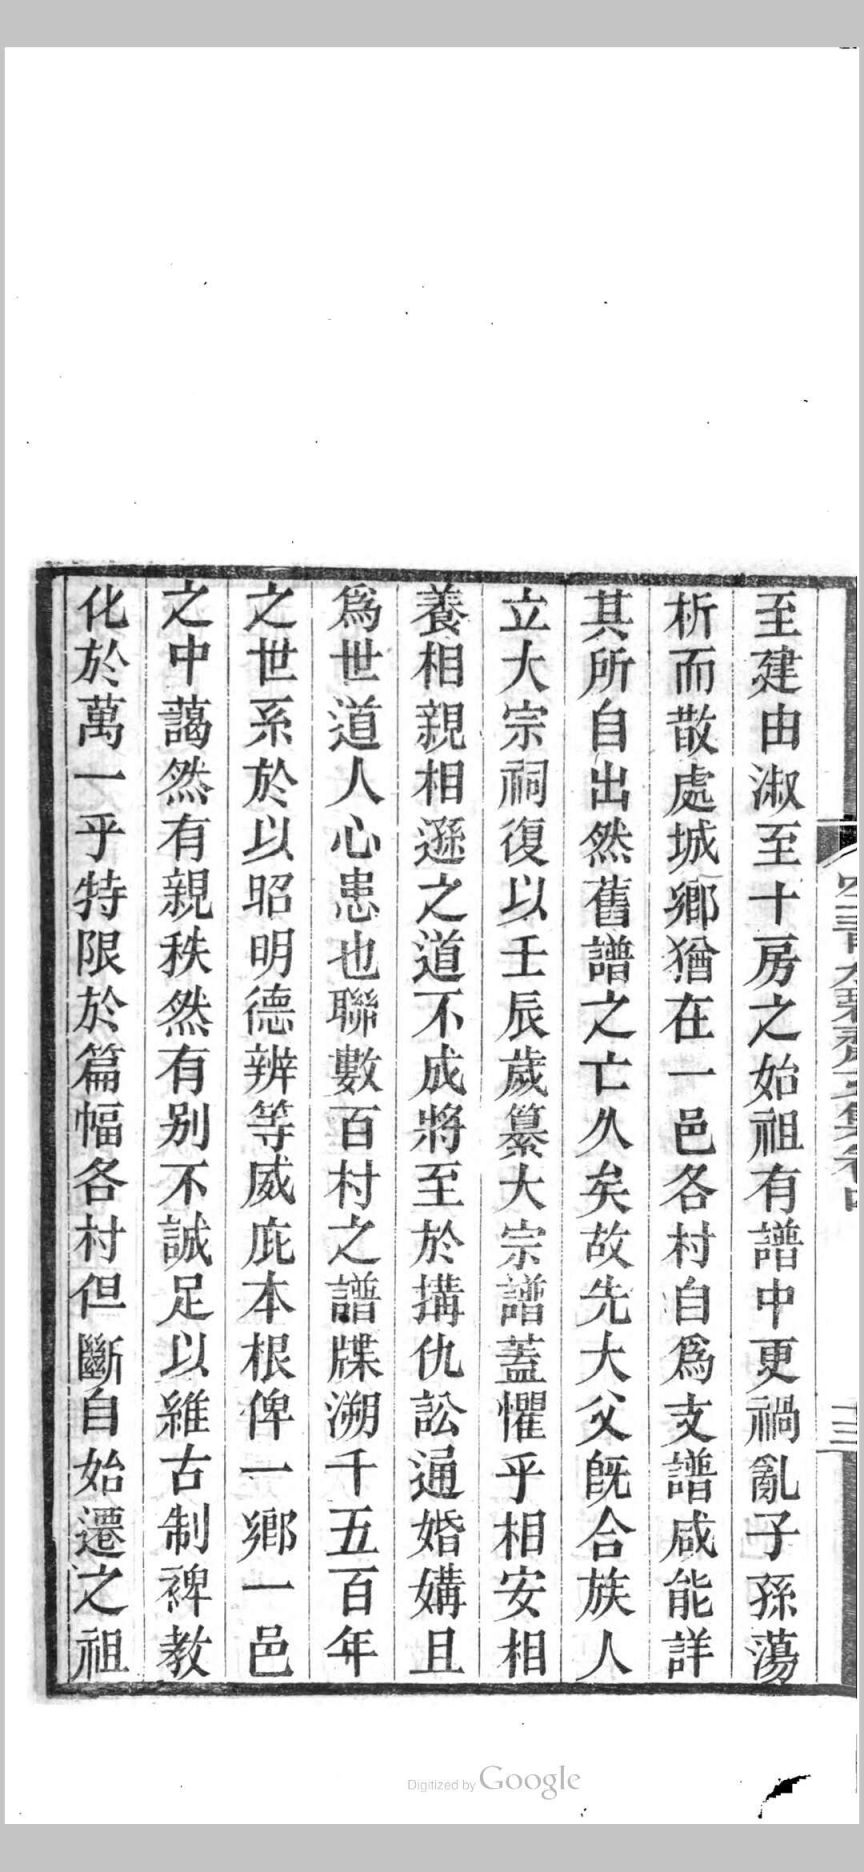 至建由淑至十房之始祖有譜中更禍亂子孫蕩
析而散處城鄉猶在一邑各村自爲支譜咸能詳
其所自出然舊譜之亡久矣故先大父旣合族人
立大宗祠復以壬辰歲纂大宗譜蓋懼乎相安相
養相親相遜之道不成將至於搆仇訟通婚媾且
爲世道人心患也聯數百村之譜牒溯千五百年
之世系於以昭明德辨等威庇本根俾一鄉一邑
之中藹然有親秩然有别不誠足以維古制裨教
化於萬一乎特限於篇幅各村但斷自始遷之祖
Digitized by Google